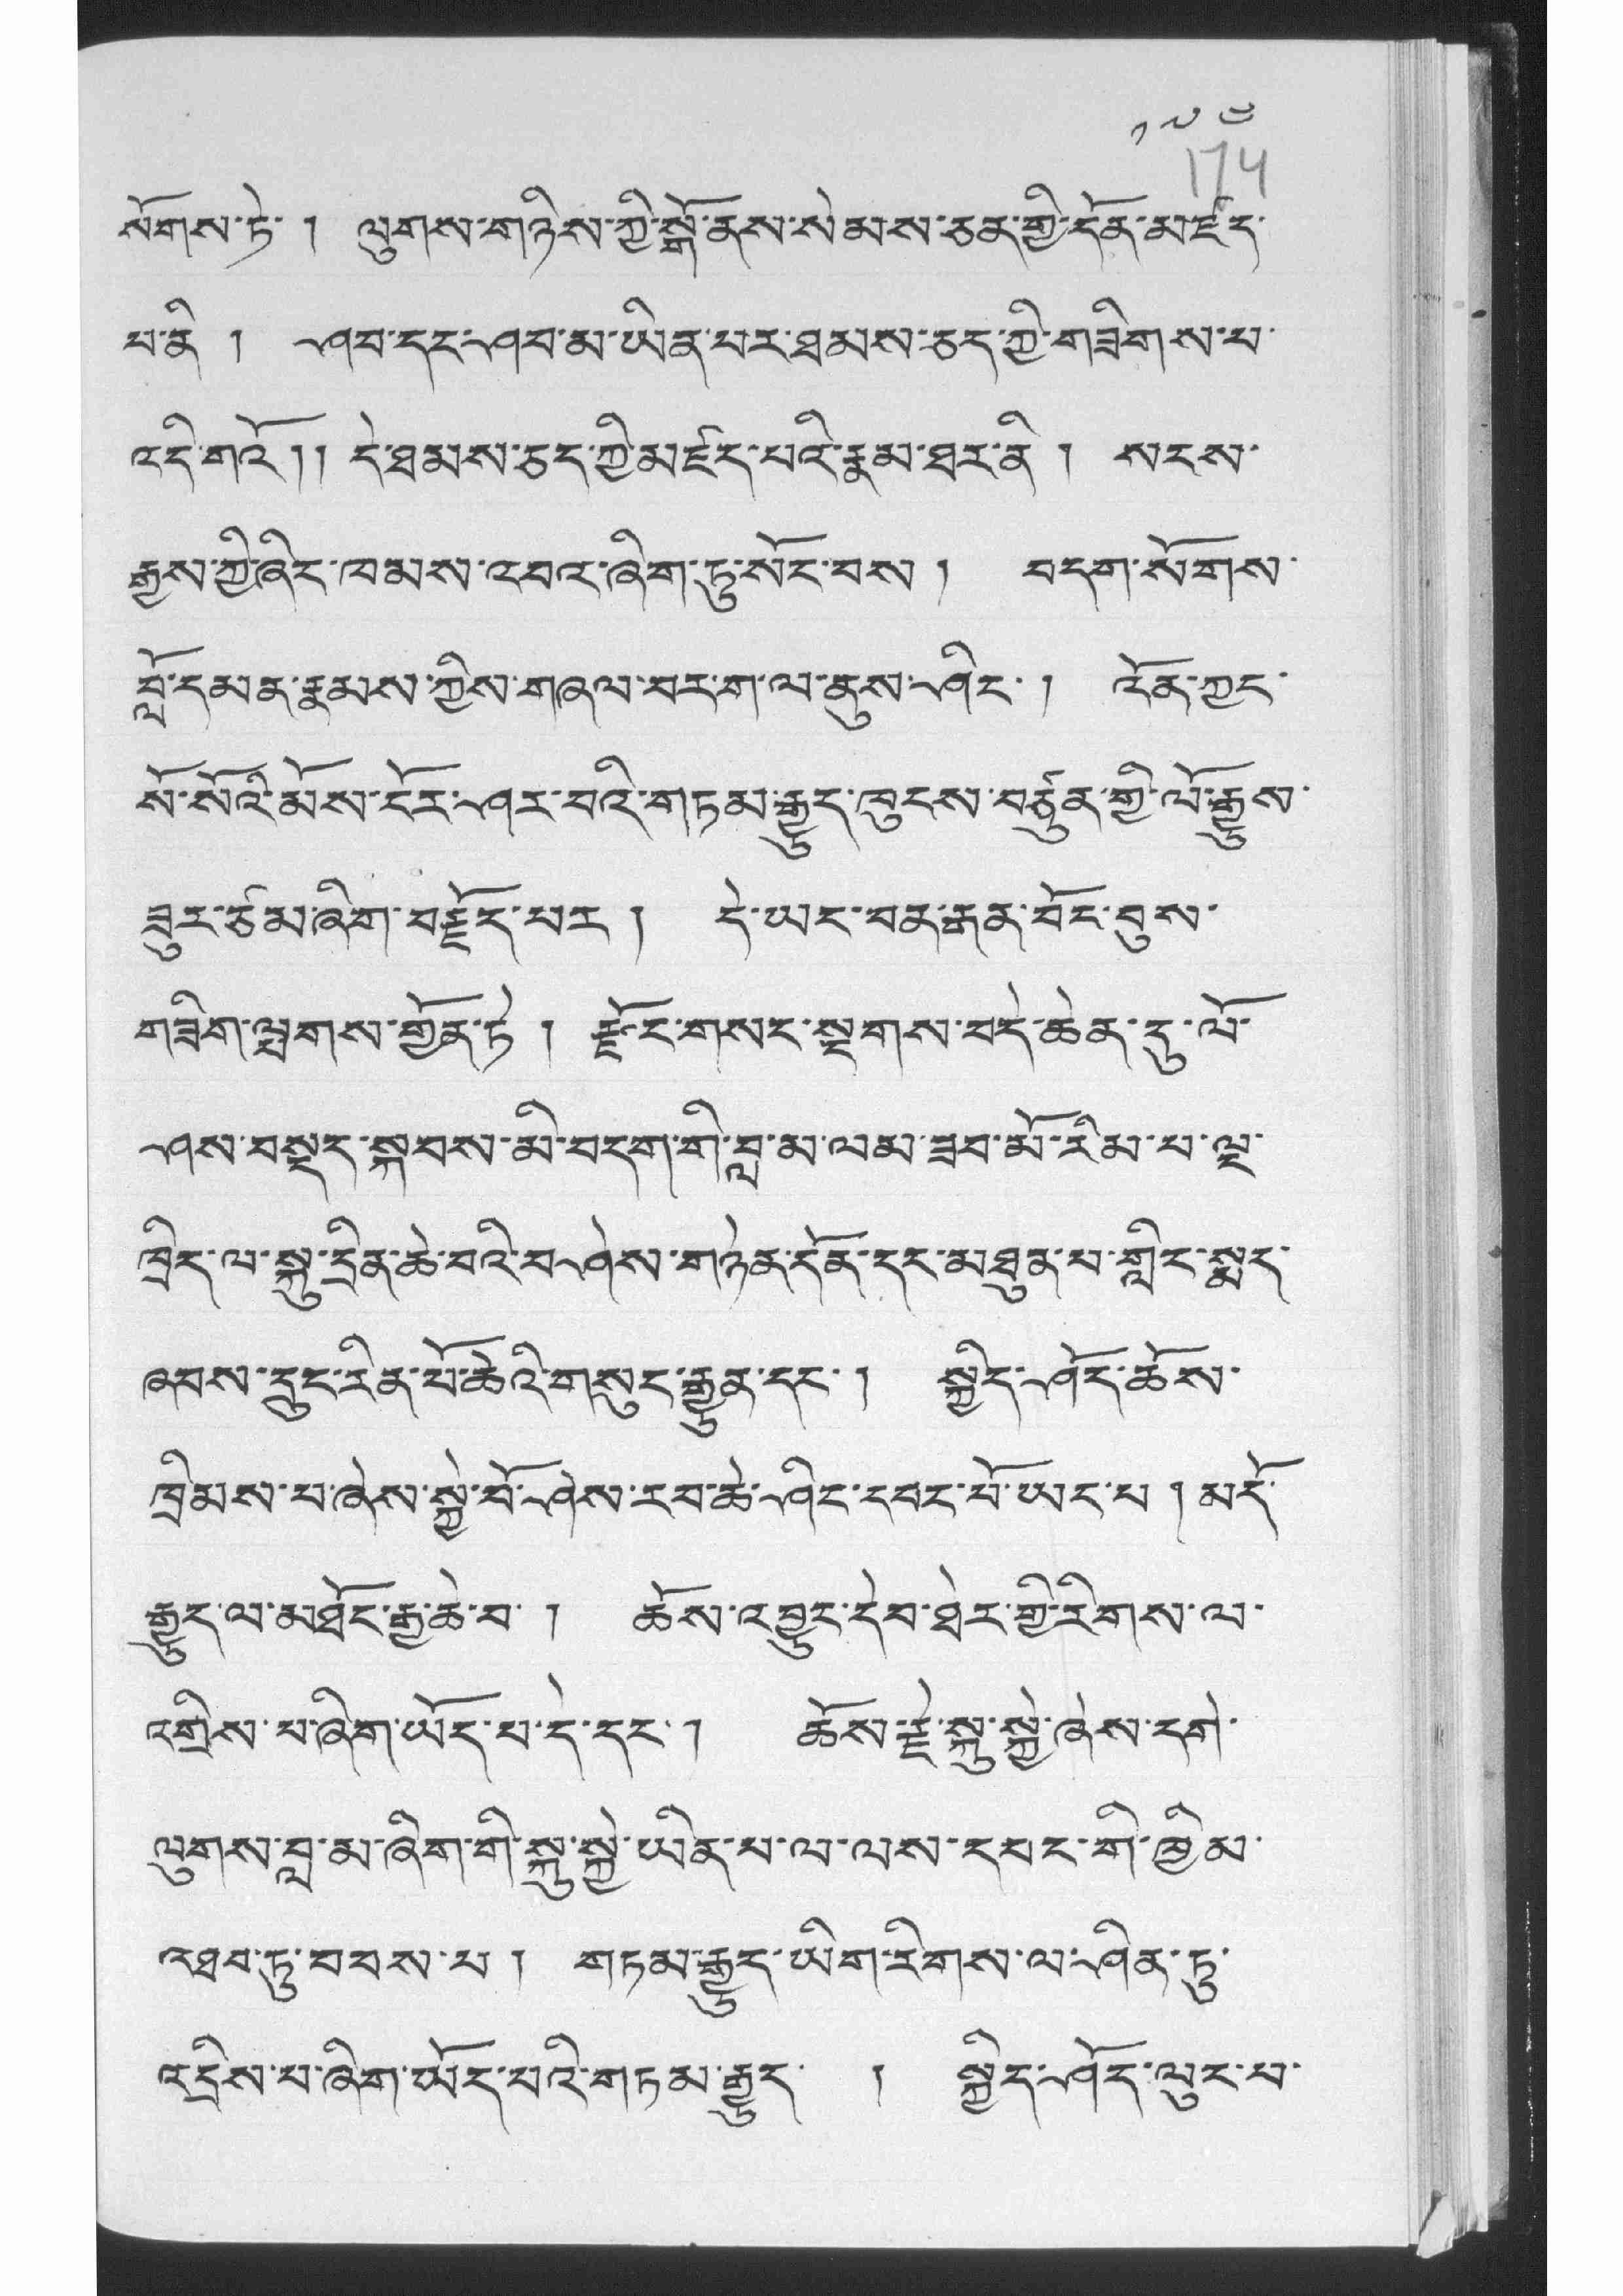 ༡༧༤
174
སོགས་ཏེ། ལུགས་གཉིས་ཀྱི་སྒོ་ནས་སེམས་ཅན་གྱི་དོན་མཛད་
པ་ནི། ཤབ་དང་ཤབ་མ་ཡིན་པར་ཐམས་ཅད་ཀྱི་གཟིགས་པ་
འདི་གའོ།། དེ་ཐམས་ཅད་ཀྱི་མཛད་པའི་རྣམ་ཐར་ནི། སངས་
རྒྱས་ཀྱི་ཞིང་ཁམས་འབའ་ཞིག་ཏུ་སོང་བས། བདག་སོགས་
བློ་དམན་རྣམས་ཀྱིས་གཞལ་བར་ག་ལ་ནུས་ཤིང་། འོན་ཀྱང་
སོ་སོའི་མོས་ངོར་ཤར་བའི་གཏམ་རྒྱུད་ཁུངས་བཙུན་གྱི་ལོ་རྒྱུས་
ཟུར་ཙམ་ཞིག་བརྗོད་པར། དེ་ཡང་བན་རྒན་བོང་བུས་
གཟིག་ལྤགས་གྱོན་ཏེ། རྫོང་གསང་སྔགས་བདེ་ཆེན་དུ་ལོ་
ཤས་བསྡད་སྐབས་མི་བདག་གི་བླ་མ་ལམ་ཟབ་མོ་རིམ་པ་ལྔ་
ཁྲིད་ལ་སྐུ་དྲིན་ཆེ་བའི་བཤེས་གཉེན་དོན་དང་མཐུན་པ་གླིང་སྨད་
ཞབས་དྲུང་རིན་པོ་ཆེའི་གསུང་རྒྱུན་དང་། སྐྱིད་ཤོད་ཆོས་
ཁྲིམས་པ་ཞེས་སྐྱེ་བོ་ཤེས་རབ་ཆེ་ཤིང་དབང་པོ་ཡང་པ། མདོ་
རྒྱུད་ལ་མཐོང་རྒྱ་ཆེ་བ། ཆོས་འབྱུང་དེབ་ཐེར་གྱི་རིགས་ལ་
འགྲིས་པ་ཞིག་ཡོད་པ་དེ་དང་། ཆོས་རྗེ་སྐུ་སྐྱེ་ཞེས་དགེ་
ལུགས་བླ་མ་ཞིག་གི་སྐུ་སྐྱེ་ཡིན་པ་ལ་ལས་དབང་གི་ཁྱིམ་
འཐབ་ཏུ་བབས་པ། གཏམ་རྒྱུད་ཡིག་རིགས་ལ་ཤིན་ཏུ་
འདྲིས་པ་ཞིག་ཡོད་པའི་གཏམ་རྒྱུད། སྐྱིད་ཤོད་ལུང་པ་